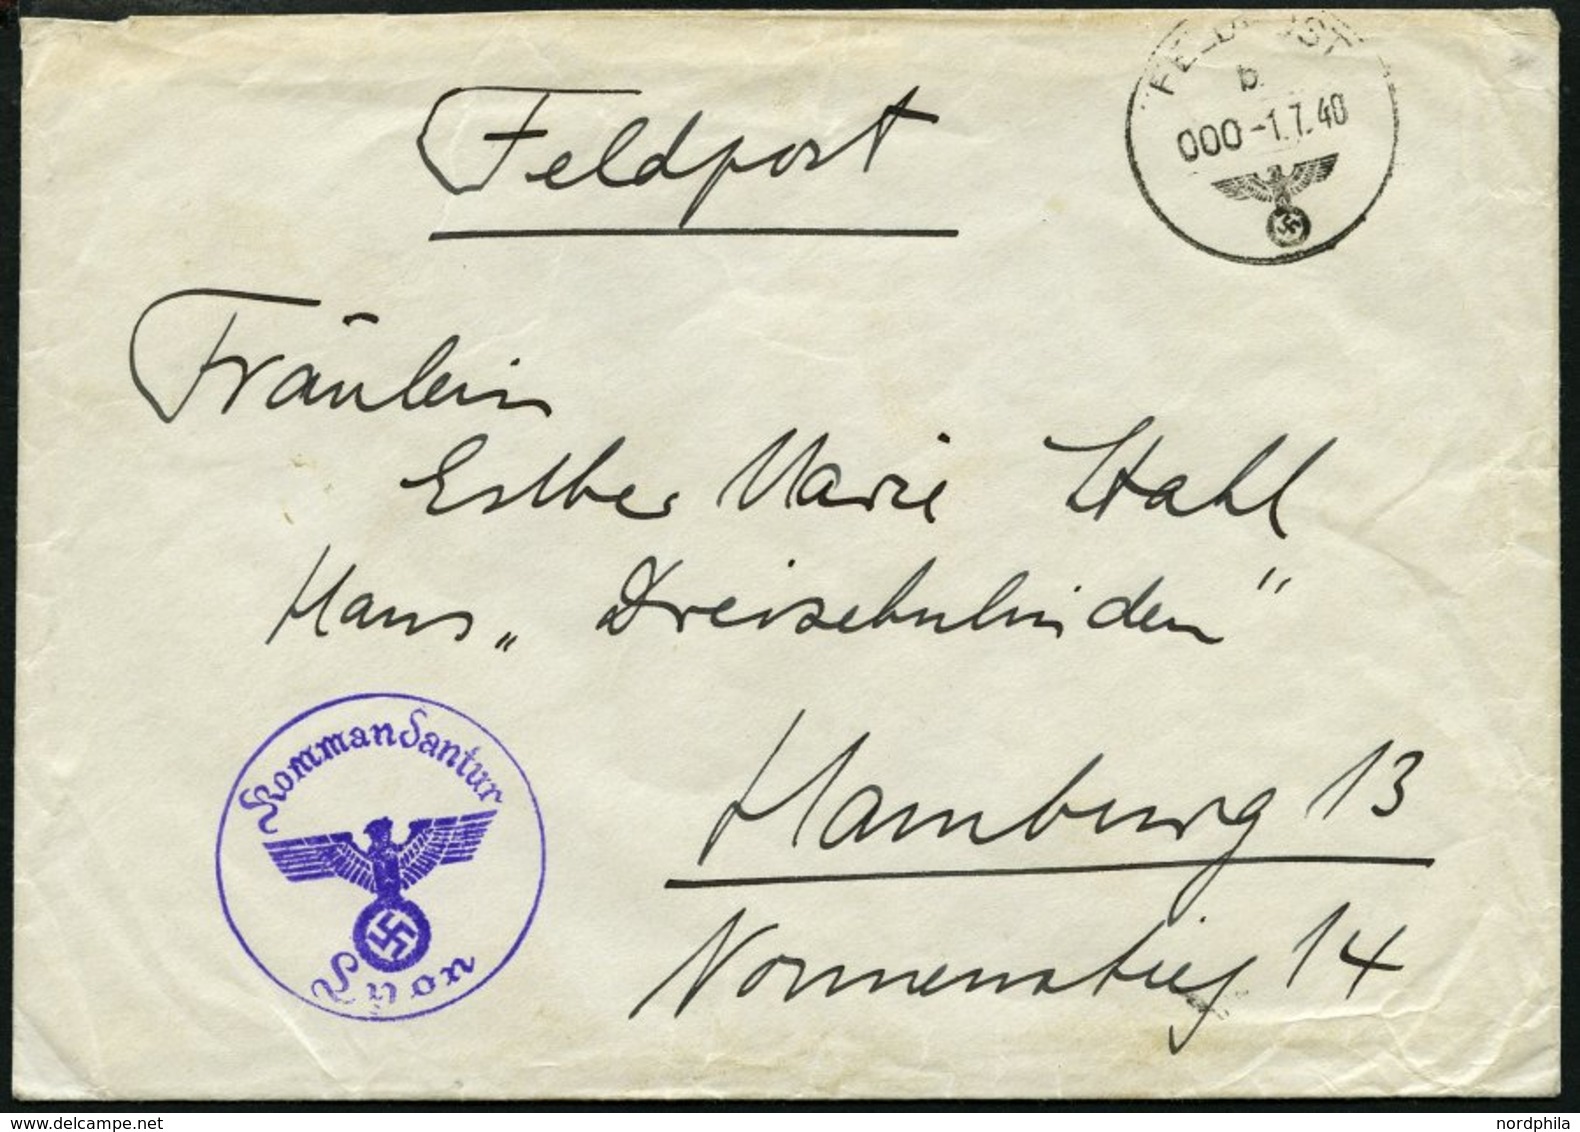 Feldpost
FELDPOST
b
000 -1.7.40
Fräulein
Esther Marie Stahl
Haus „Dreisebulinden“
Hamburg 13
Nonnenstieg 14
Kommandantur
Lyon
nordphila